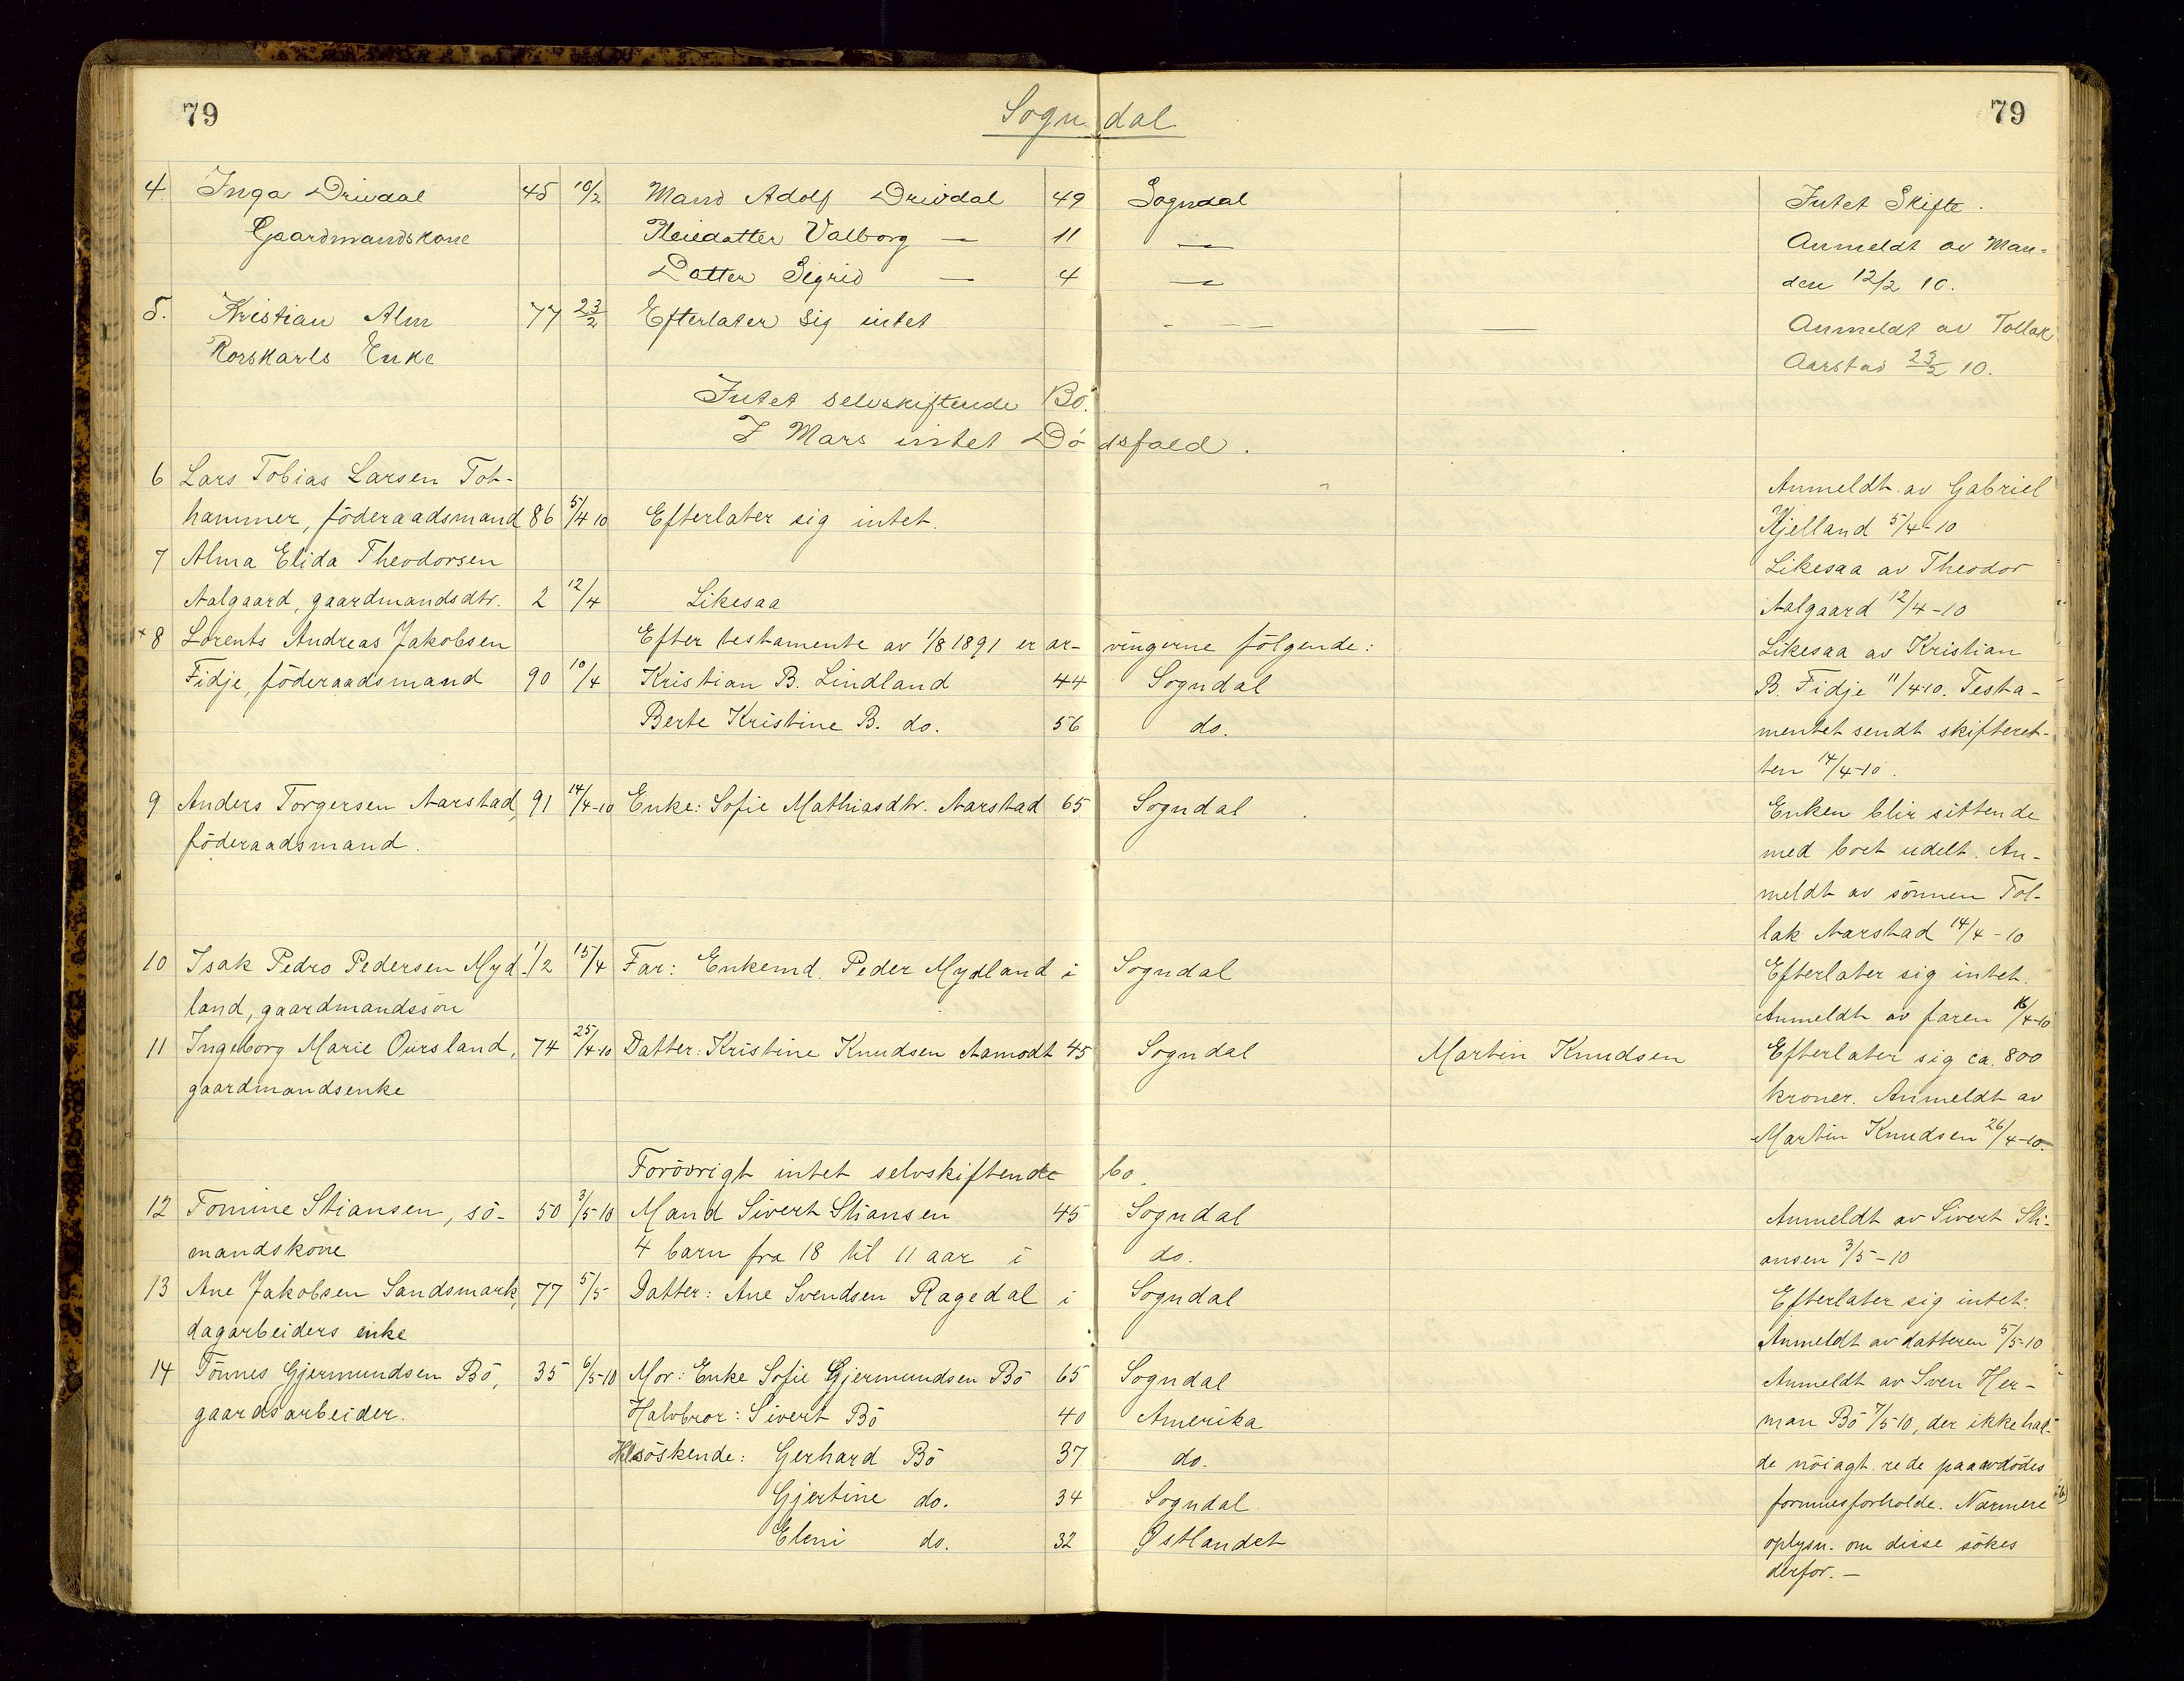 79 Sogndal 79
4 Inga Drivdal 45 10/2 Mand Adolf Drivdal 49 Sogndal Intet Skifte.
Gaardmandskone Pleiedatter Valborg — 11 — Anmeldt av Man-
Datter Sigrid — 4 — den 12/2 10.
5. Kristian Alm 77 23/2 Efterlater sig intet - — — — Anmeldt av Tollak
Enke Aarstad 23/2 10.
Intet selvskiftende Bó.
I Mars intet Dódsfald.
6 Lars Tobias Larsen Tot- Anmeldt av Gabriel
hammer, föderaadsmand 86 5/4 10 Efterlater sig intet. Kjelland 5/4-10
7 Alma Elida Theodorsen Likesaa av Theodor
Aalgaard, gaardmandsdtr. 2 12/4 Likesaa Aalgaard 12/4-10
+ 8 Lorents Andreas Jakobsen Efter testamente av 1/8 1891 er ar-vingerne fölgende: Likesaa av Kristian
Fidje, föderaadsmand 90 10/4 Kristian B. Lindland 44 Sogndal B. Fidje 11/4 10. Testa-
Berte Kristine B. do. 56 do. mentet sendt skifteret-
ten 14/4-10.
9 Anders Torgersen Aarstad, 91 14/4-10 Enke: Sofie Mathiasdtr. Aarstad 65 Sogndal Enken blir sittende
föderaadsmand. med boet udelt. An-
meldt av sönnen Tol-
lak Aarstad 14/4-10
10 Isak Pedro Pedersen Myd- 1/2 15/4 Far: Enkemd. Peder Mydland i Sogndal Efterlater sig intet.
land, gaardmandssön Anmeldt av faren 16/4-10
11 Ingeborg Marie Oursland, 74 25/4-10 Datter: Kristine Knudsen Aamodt 45 Sogndal Martin Knudsen Efterlater sig ca. 800
gaardmandsenke kroner. Anmeldt av
Martin Knudsen 26/4-10.
Forövrigt intet selvskiftende bo.
12 Tomine Stiansen, sö- 50 3/5-10 Mand Sivert Stiansen 45 Sogndal Anmeldt av Sivert Sti-
mandskone 4 barn fra 18 til 11 aar i do. ansen 3/5-10
13 Ane Jakobsen Sandsmark, 77 5/5 Datter: Ane Svendsen Ragedal i Sogndal Efterlater sig intet.
dagarbeiders enke Anmeldt av datteren 5/5-10
14 Tönnes Gjermundsen Bö, 35 6/5-10 Mor: Enke Sofie Gjermundsen Bö 65 Sogndal Anmeldt av Sven Her-
gaardsarbeider. Halvbror: Sivert Bö 40 Amerika man Bö 7/5 10, der ikke had-
Helsöskende: Gerhard Bö 37 do. de nöiagt. rede paa avdödes
Gjertine do. 34 Sogndal formuesforholde. Nærmere
Eleni do. 32 Østlandet oplysn. om disse sökes
derfor. —